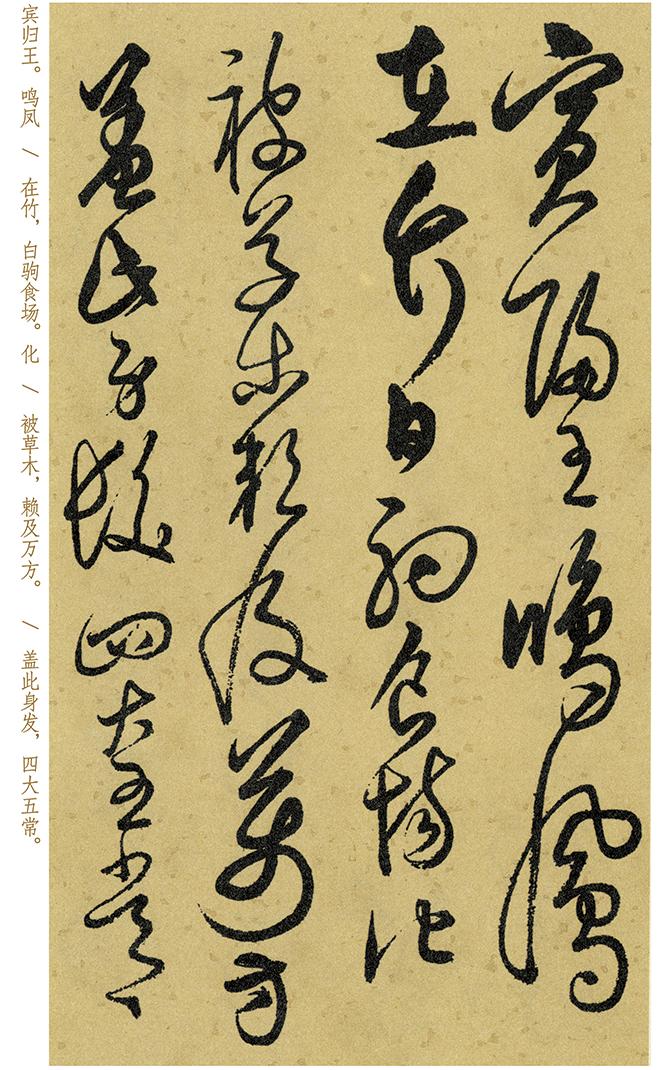 賓歸王鳴鳳
在竹白駒食場化
被草木賴及萬方
蓋此身髮四大五常
宾归王。鸣凤 / 在竹，白驹食场。化 / 被草木，赖及万方。 / 盖此身发，四大五常。